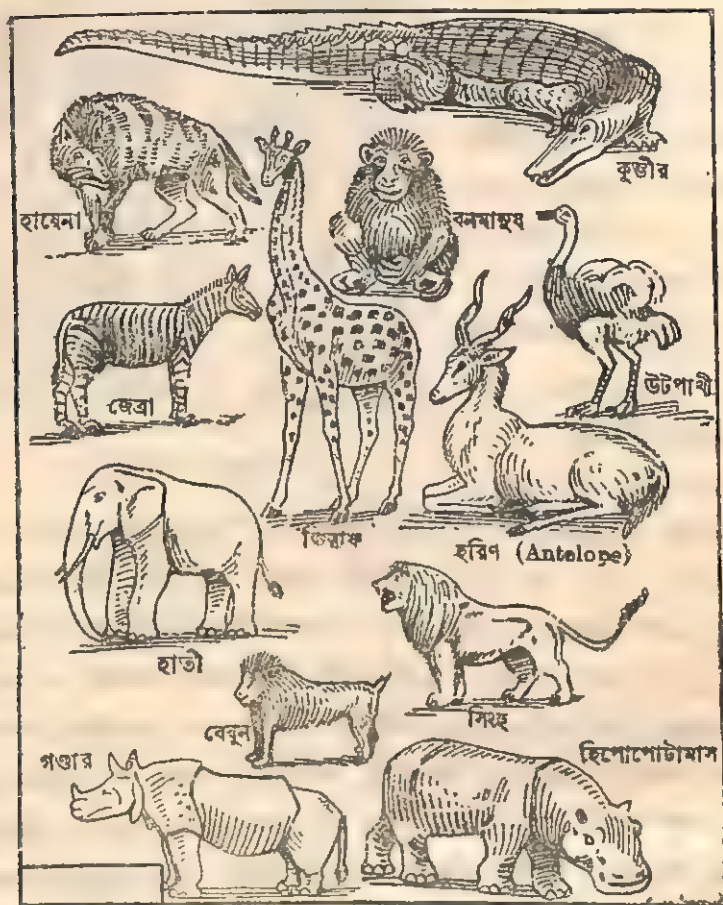 কুম্ভীর
হায়েনা
বনমানুষ
জেব্রা
উটপাখী
জিরাফ
হরিণ (Antelope)
হাতী
সিংহ
বেবুন
গণ্ডার
হিপোপোটামাস